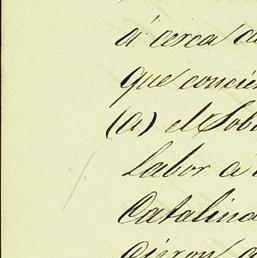 á cerca de
que concier
(a) el Sob
labor a
Catalina